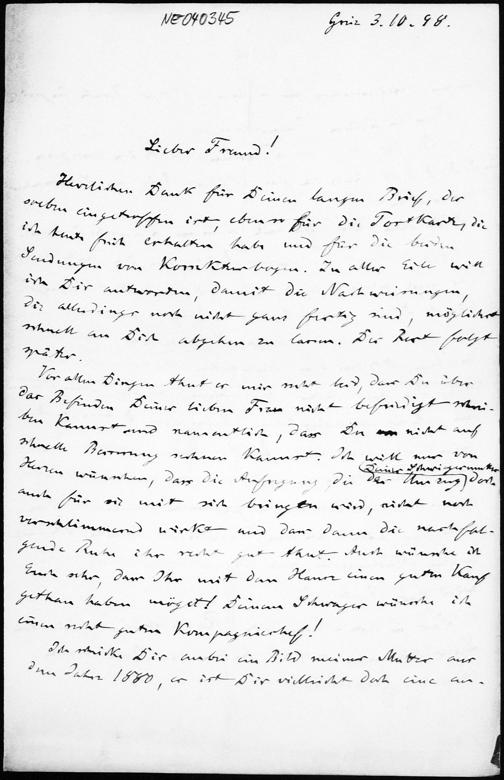 NE040345
Graz 3.10.98.
Lieber Freund!
Herzlichen Dank für Deinen langen Brief, der
soeben eingetroffen ist, ebenso für die Postkarte, die
ich heute früh erhalten habe und für die beiden
Sendungen von Korrekturbogen. In aller Eile will
ich Dir antworten, damit die Nachweisungen,
die allerdings noch nicht ganz fertig sind, möglichst
schnell an Dich abgehen zu lassen. Der Rest folgt
später.
Vor allen Dingen thut es mir recht leid, dass Du über
das Befinden Deiner lieben Frau nicht befriedigt schrei-
ben kannst und namentlich, dass Du nicht auf
schnelle Besserung rechnen kannst. Ich will nur von
Herzen wünschen, dass die Aufregung die der Umzug Deiner Schwiegermutter doch
auch für sie mit sich bringen wird, nicht noch
verschlimmernd wirkt und dass dann die nachfol-
gende Ruhe ihr recht gut thut. Auch wünsche ich
Euch sehr, dass Ihr mit dem Hause einen guten Kauf
gethan haben möget! Deinem Schwager wünsche ich
einen recht guten Kompagniechef!
Ich schicke Dir anbei ein Bild meiner Mutter aus
dem Jahre 1880, es ist Dir vielleicht doch eine an-